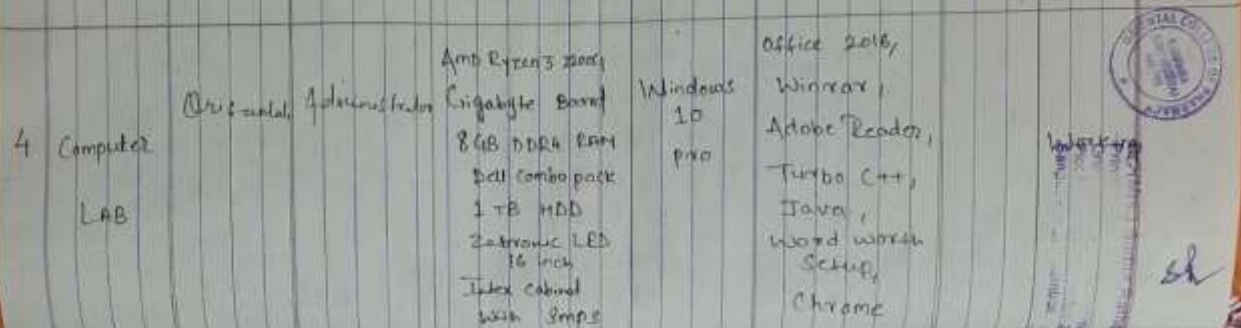 4 Computer
LAB
Oriental
Administrator
AMD Ryzen 3 2200g
Gigabyte Board
8 GB DDR4 RAM
Dell Combo pack
1 TB HDD
Zebronic LED
16 inch
Intex Cabinet
with Smps
Windows
10
pro
Office 2016,
Winrar,
Adobe Reader,
Turbo C++,
Java,
Word worth
Setup,
Chrome
Working